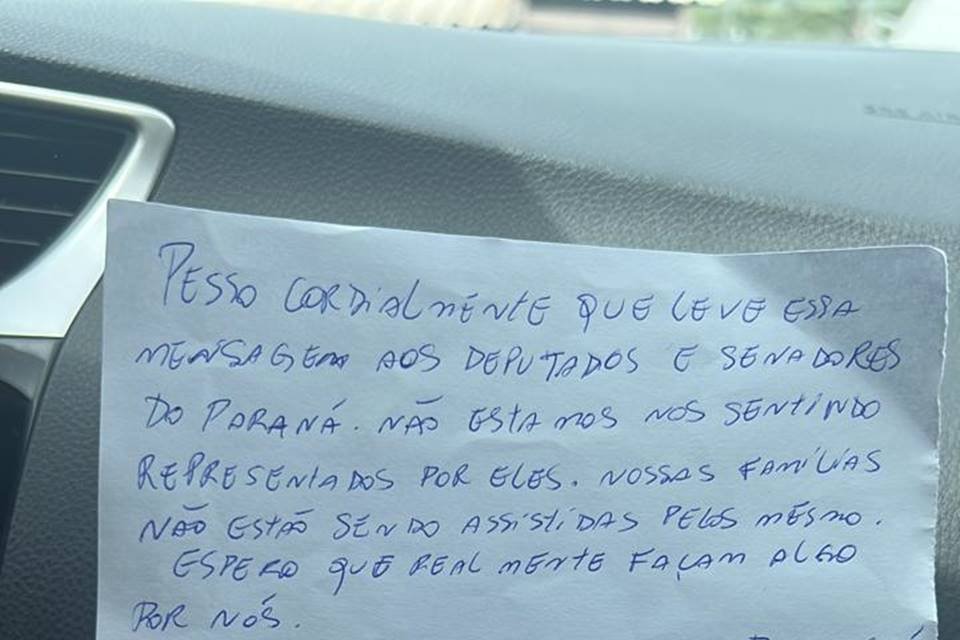 PESSO CORDIALMENTE QUE LEVE ESSA
MENSAGEM AOS DEPUTADOS E SENADORES
DO PARANÁ. NÃO ESTAMOS NOS SENTINDO
REPRESENTADOS POR ELES. NOSSAS FAMÍLIAS
NÃO ESTÃO SENDO ASSISTIDAS PELOS MESMO.
ESPERO QUE REALMENTE FAÇAM ALGO
POR NÓS.